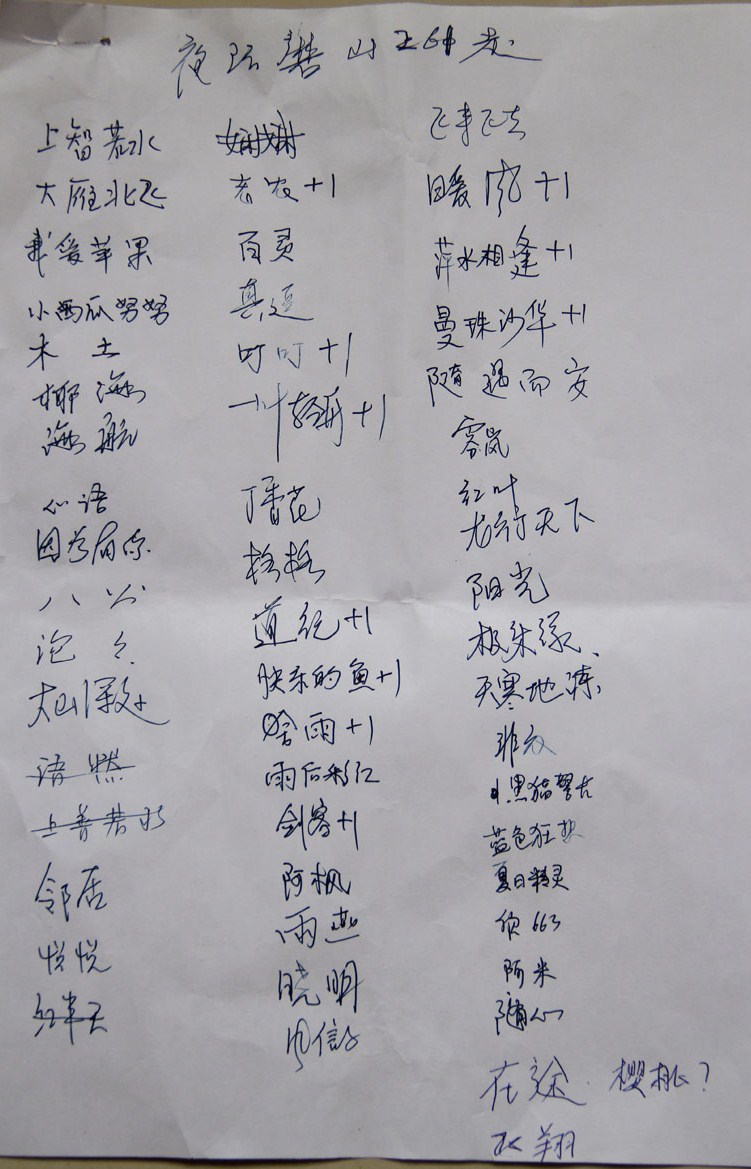 上智若水
大雁北飞
我爱苹果
小西瓜努努
木 土
椰海
海航
心语
因为有你
八公
泡々
语 燃
上善若水
邻居
悦悦
红半天
娴娴
老农+1
百灵
真逗
叮叮+1
一叶轻舟+1
丁香花
格格
道纪+1
快乐的鱼+1
哈雨+1
雨后彩虹
剑客+1
阿枫
雨燕
晓明
风信子
飞来飞去
暖风+1
萍水相逢+1
曼珠沙华+1
随遇而安
雾岚
红叶
龙行天下
阳光
极朱绿
天寒地冻
非衣
小黑猫警长
蓝色狂想
夏日精灵
欣663
阿米
随心
在途 樱桃?
张翔